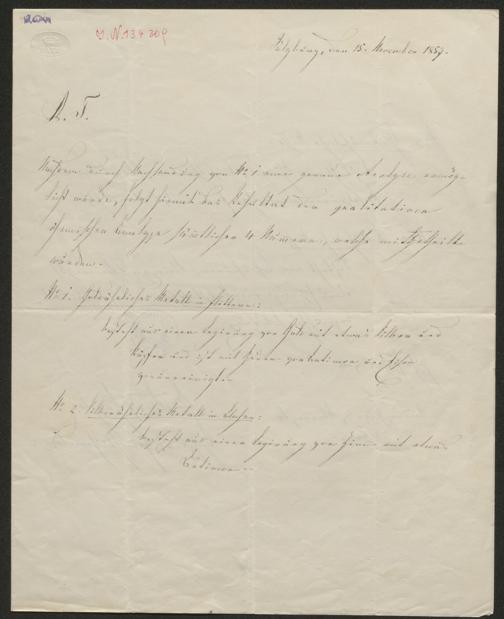 I.N. 134 309
Salzburg, den 15. November 1857.
P. T.
Nachdem durch Nachsendung von No 1 eine genaue Analyse ermög-
licht wurde, folgt hiemit das Resultat der qualitativen
chemischen Analyse sämmtlicher 4 Nummern, welche mitgetheilt
wurden.
No 1. Goldähnliches Metall in Flittern:
besteht aus einer Legirung von Gold mit etwas Silber und
Kupfer und ist mit und
verunreinigt.
No 2. Silberähnliches Metall in
besteht aus einer Legirung von Zinn mit etwas